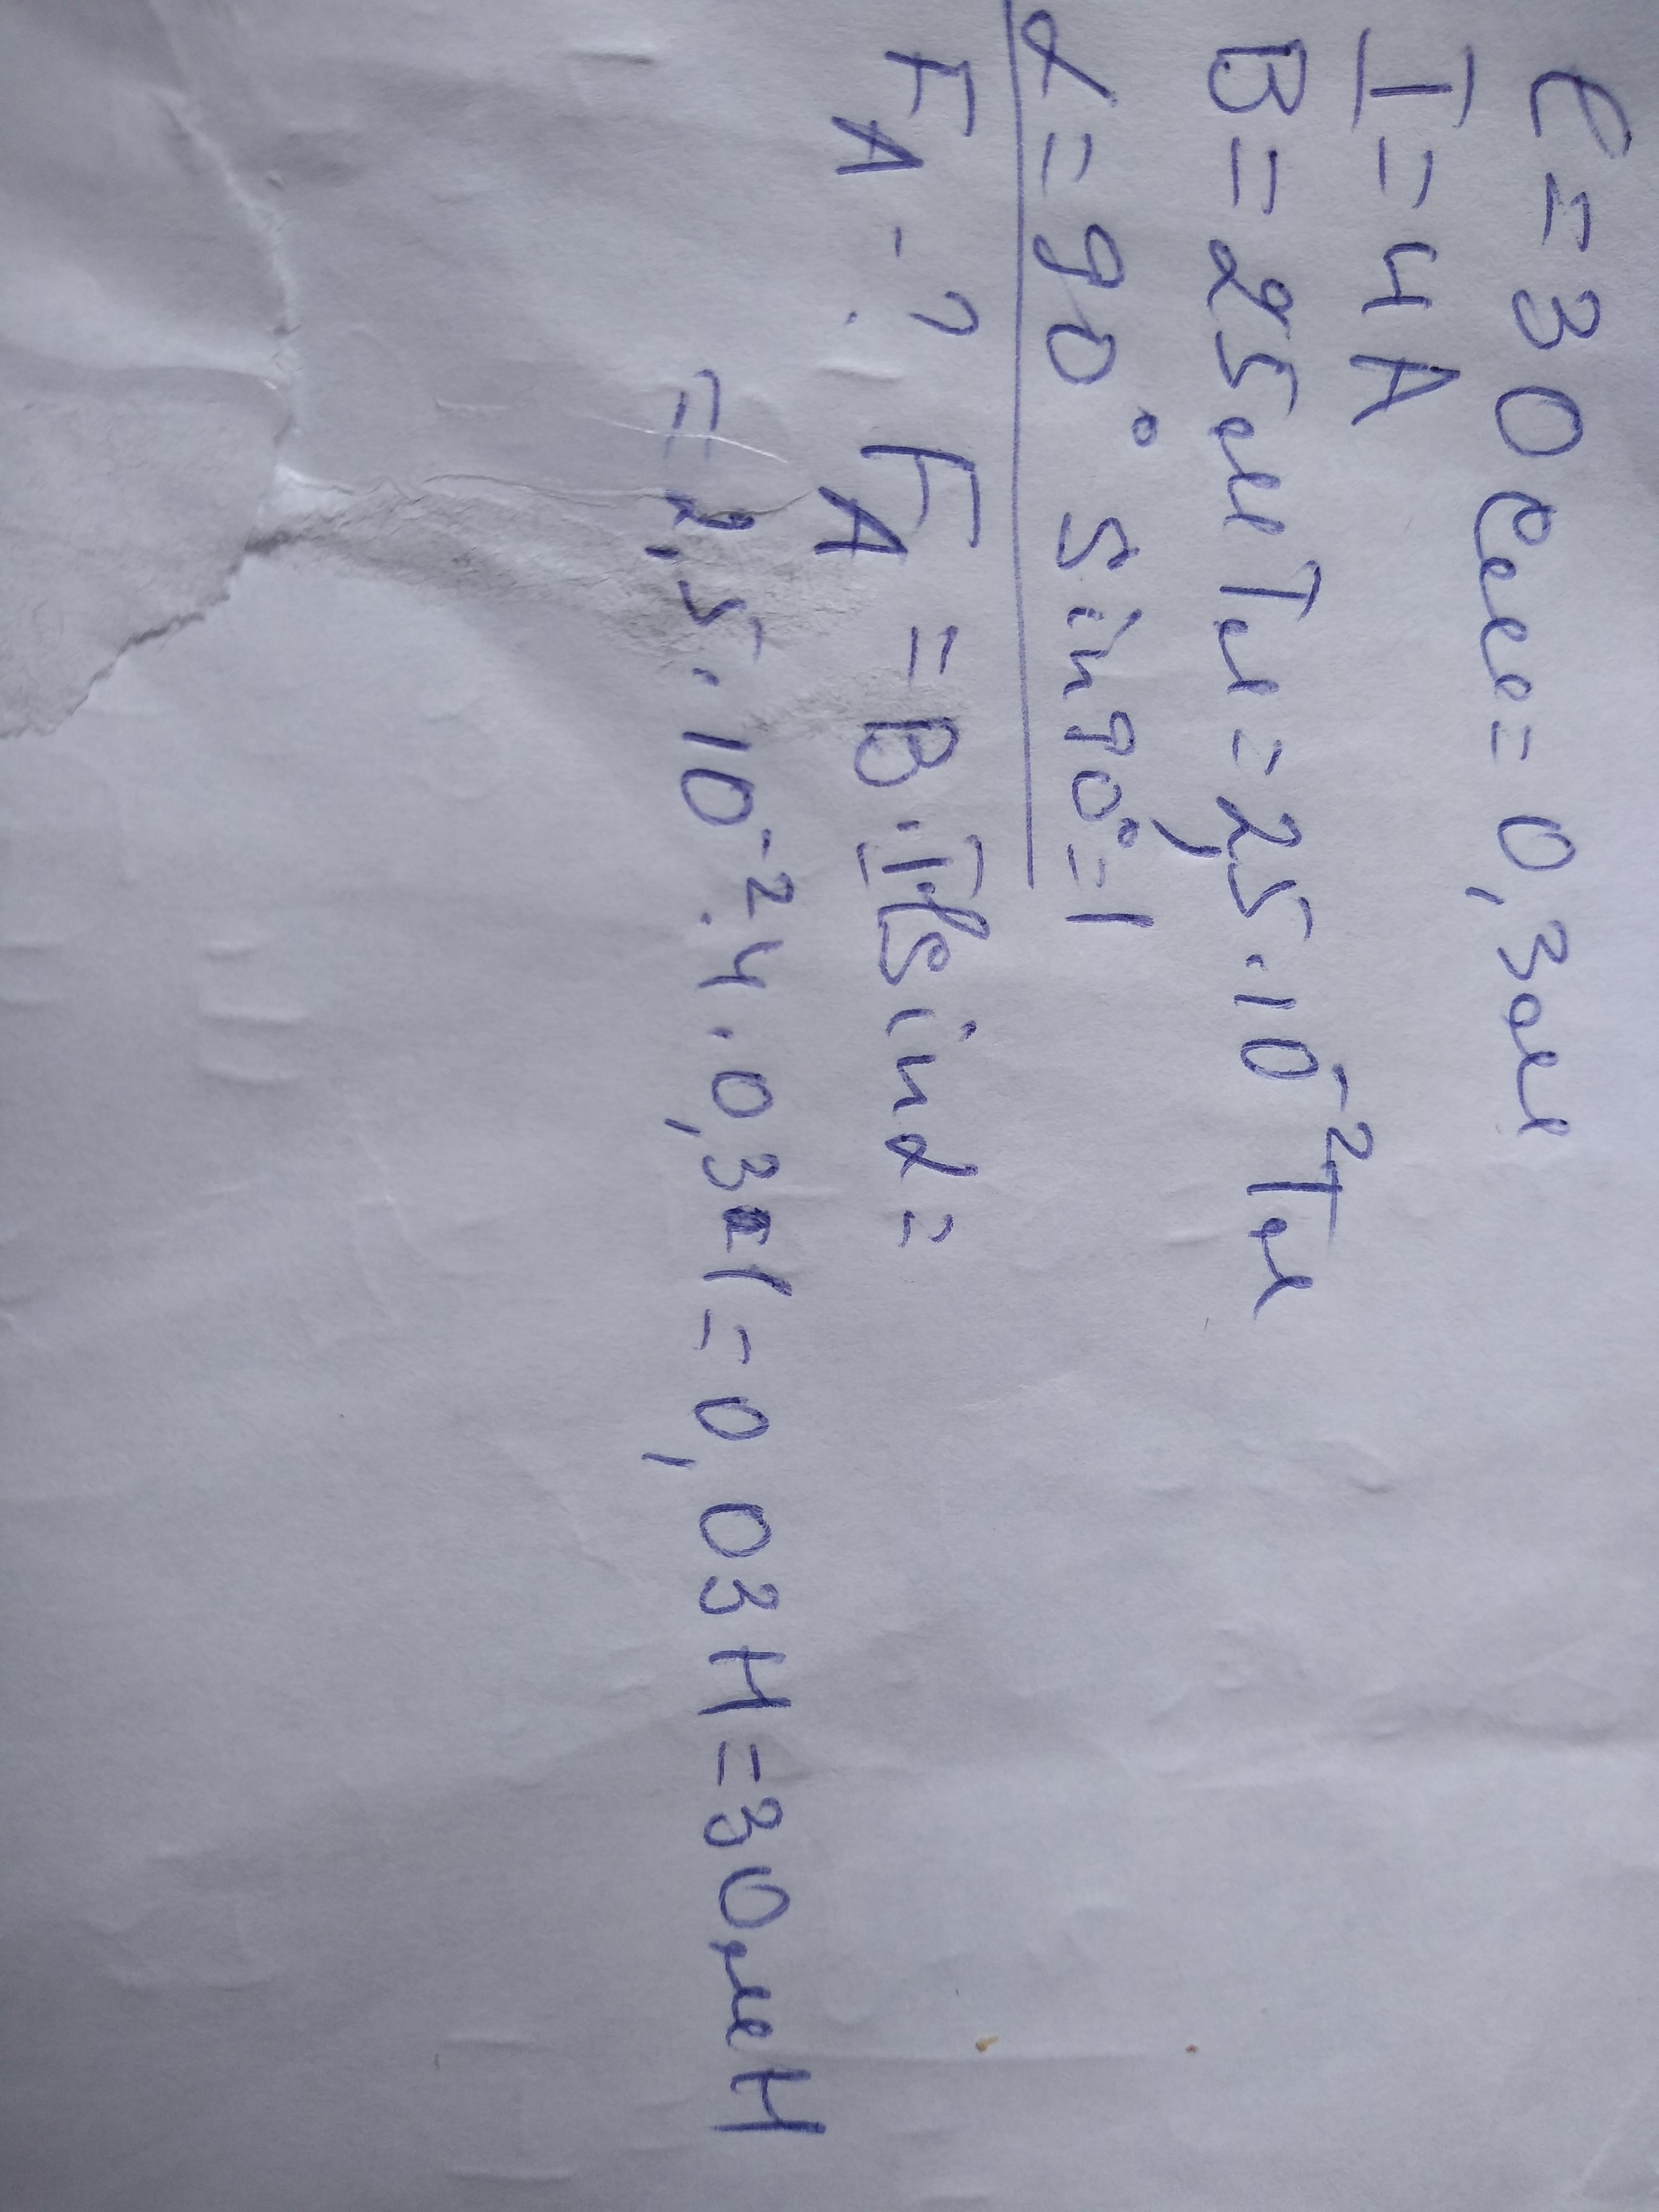 ℓ=30см=0,3м
I=4А
B=25мТл=2,5·10⁻²Тл
α=90° sin90°=1
FА-? FА=B·Iℓsinα=
=2,5·10⁻²·4·0,3·1=0,03Н=30мН